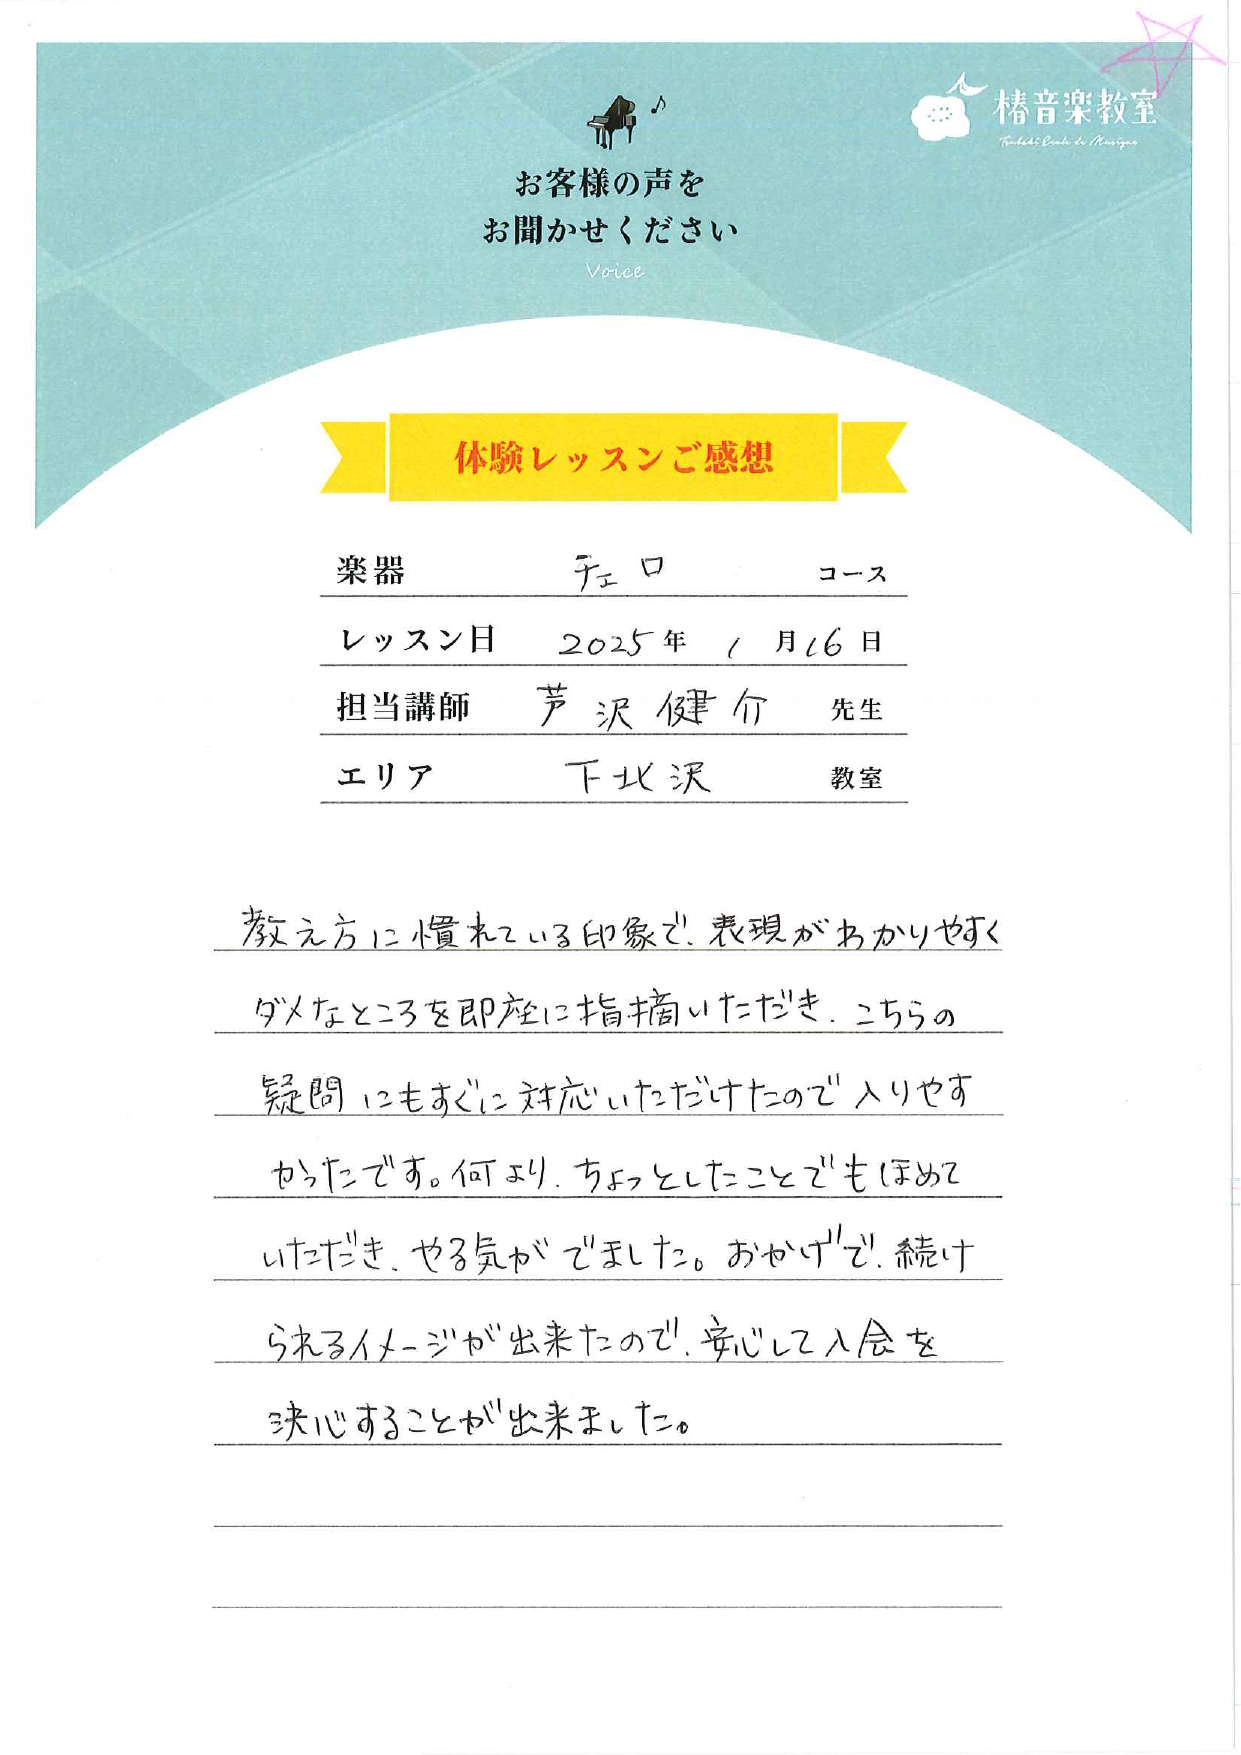 椿音楽教室
Tsubaki Ecole de Musique
お客様の声を
お聞かせください
Voice
体験レッスンご感想
楽器 チェロ コース
レッスン日 2025年 1月16日
担当講師 芦沢健介 先生
エリア 下北沢 教室
教え方に慣れている印象で、表現がわかりやすく
ダメなところを即座に指摘いただき、こちらの
疑問にもすぐに対応いただけたので入りやす
かったです。何より、ちょっとしたことでもほめて
いただき、やる気がでました。おかげで、続け
られるイメージが出来たので、安心して入会を
決心することが出来ました。